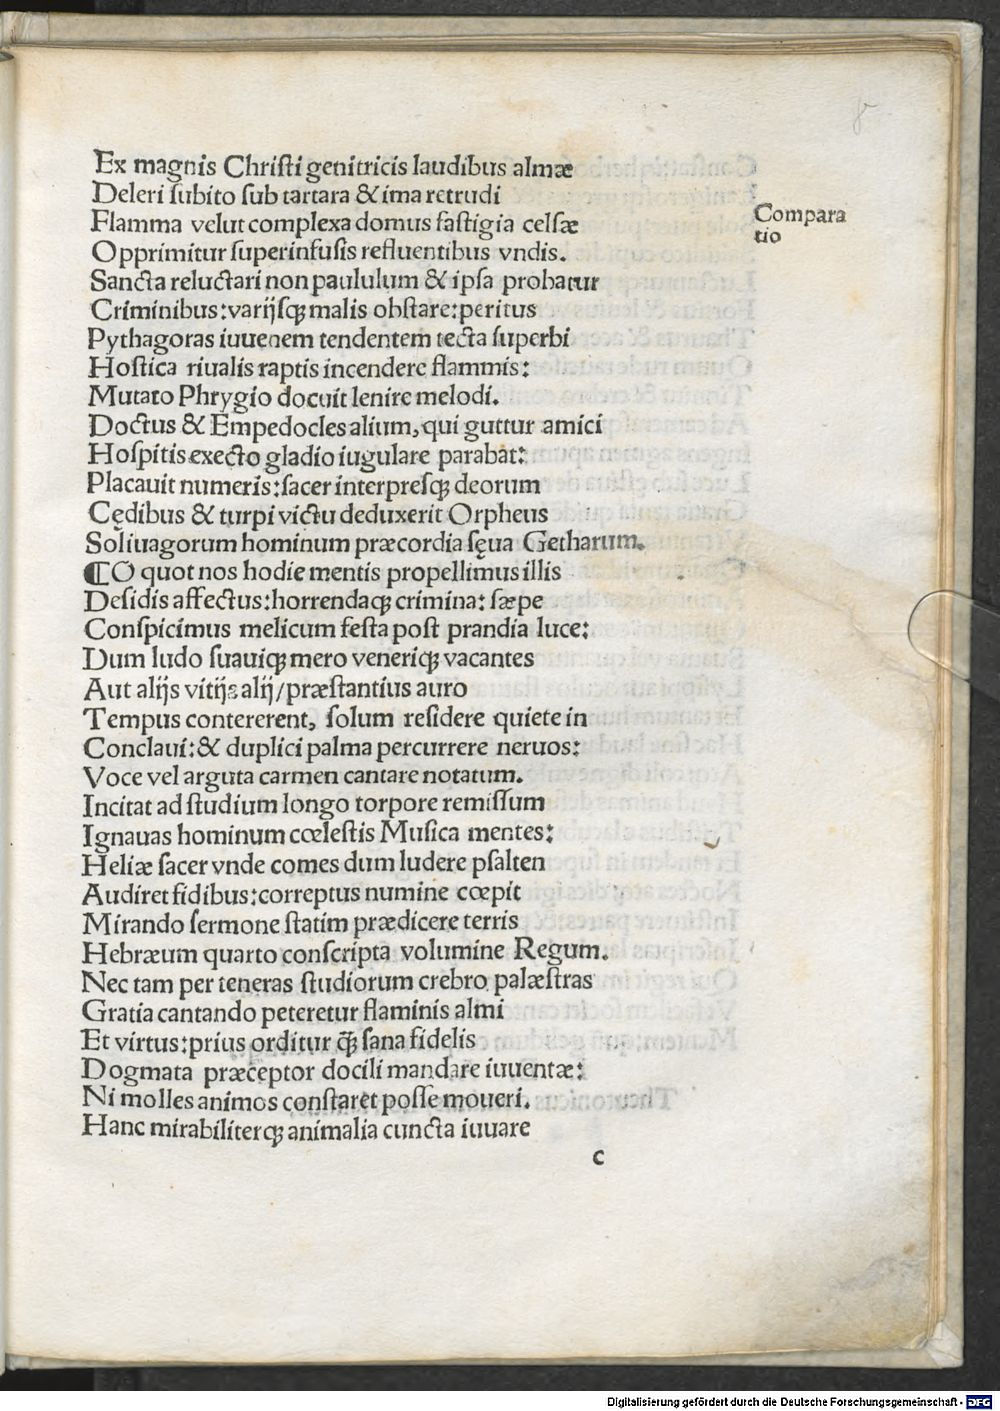 8
Ex magnis Chriſti genitricis laudibus almæ
Deleri ſubito ſub tartara & ima retrudi
Flamma velut complexa domus faſtigia celſæ
Compara
tio
Opprimitur ſuperinfuſis refluentibus vndis.
Sancta reluctari non paululum & ipſa probatur
Criminibus: varijſqꝫ malis obſtare: peritus
Pythagoras iuuenem tendentem tecta ſuperbi
Hoſtica riualis raptis incendere flammis:
Mutato Phrygio docuit lenire melodi.
Doctus & Empedocles alium, qui guttur amici
Hoſpitis execto gladio iugulare parabat:
Placauit numeris: ſacer interpreſqꝫ deorum
Cędibus & turpi victu deduxerit Orpheus
Soliuagorum hominum præcordia ſęua Getharum.
¶O quot nos hodie mentis propellimus illis
Deſidis affectus: horrendaqꝫ crimina: ſæpe
Conſpicimus melicum feſta poſt prandia luce:
Dum ludo ſuauiqꝫ mero veneriqꝫ vacantes
Aut alijs vitijs alij/ præſtantius auro
Tempus contererent, ſolum reſidere quiete in
Conclaui: & duplici palma percurrere neruos:
Voce vel arguta carmen cantare notatum.
Incitat ad ſtudium longo torpore remiſſum
Ignauas hominum cœleſtis Muſica mentes:
Heliæ ſacer vnde comes dum ludere pſalten
Audiret fidibus: correptus numine cœpit
Mirando ſermone ſtatim prædicere terris
Hebræum quarto conſcripta volumine Regum.
Nec tam per teneras ſtudiorum crebro palæſtras
Gratia cantando peteretur flaminis almi
Et virtus: prius orditur q̃ꝫ ſana fidelis
Dogmata præceptor docili mandare iuuentæ:
Ni molles animos conſtaret poſſe moueri.
Hanc mirabiliterqꝫ animalia cuncta iuuare
c
Digitalisierung gefördert durch die Deutsche Forschungsgemeinschaft - DFG